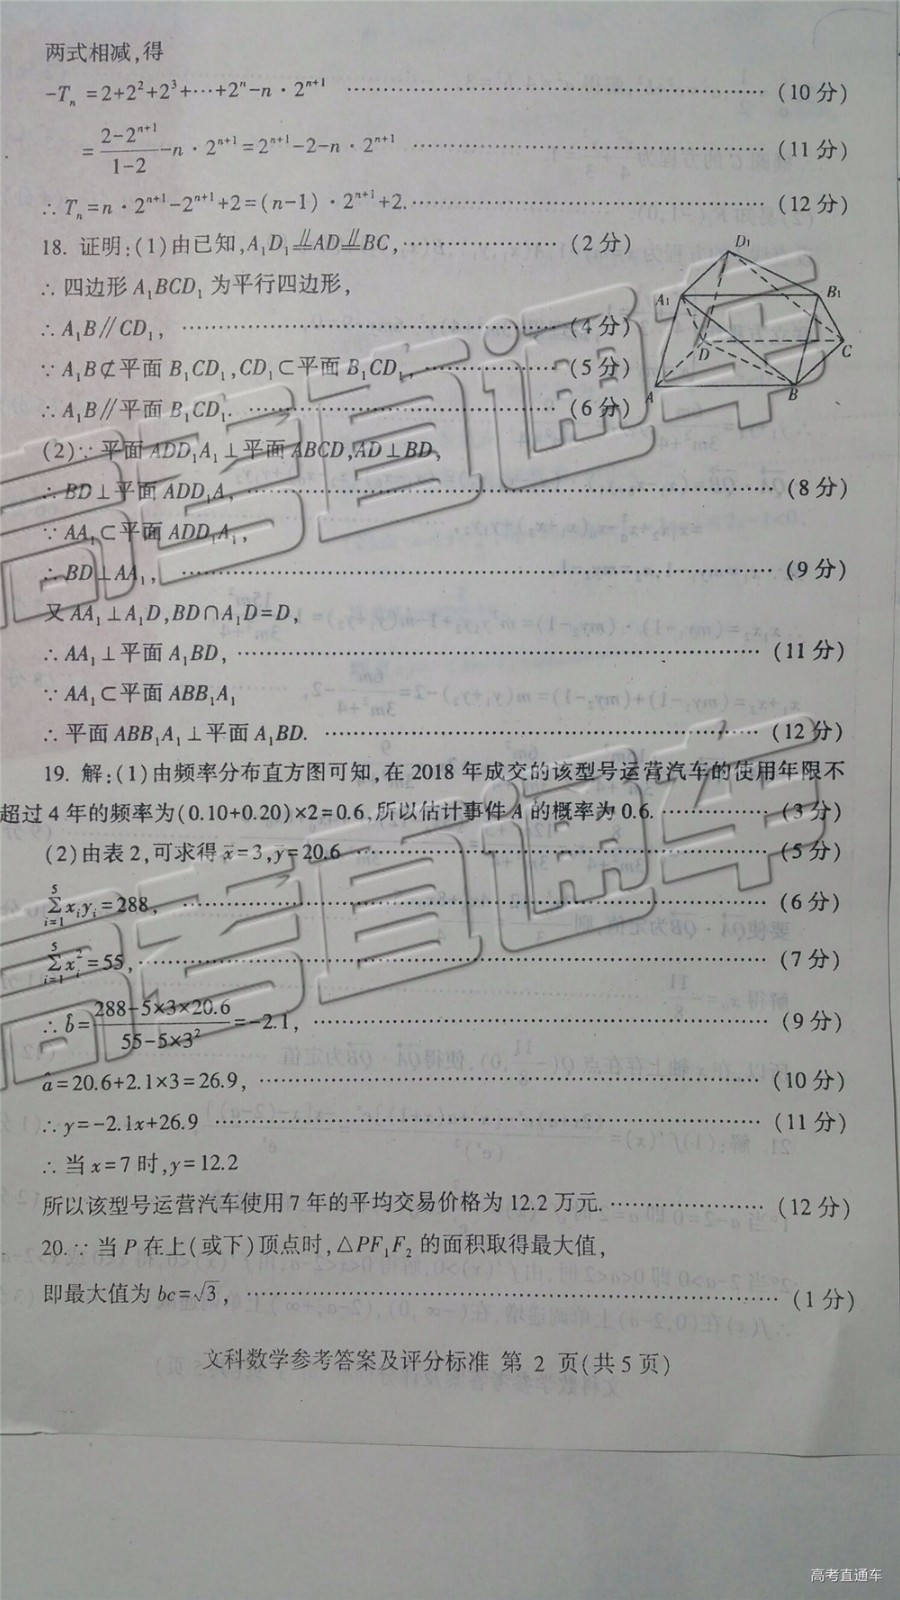 两式相减,得
-Tₙ =2+2²+2³+⋯+2ⁿ-n·2ⁿ⁺¹ ⋯⋯ (10分)
=(2-2ⁿ⁺¹)/(1-2)-n·2ⁿ⁺¹=2ⁿ⁺¹-2-n·2ⁿ⁺¹ ⋯⋯ (11分)
∴Tₙ=n·2ⁿ⁺¹-2ⁿ⁺¹+2=(n-1)·2ⁿ⁺¹+2.⋯⋯ (12分)
18. 证明:(1)由已知,A₁D₁⫫AD⫫BC,⋯⋯ (2分)
∴四边形A₁BCD₁为平行四边形,
∴A₁B∥CD₁, ⋯⋯ (4分)
∵A₁B⊄平面B₁CD₁,CD₁⊂平面B₁CD₁,⋯⋯ (5分)
∴A₁B∥平面B₁CD₁. ⋯⋯ (6分)
D₁
A₁
B₁
D
C
A
B
(2)∵平面ADD₁A₁⊥平面ABCD,AD⊥BD,
∴BD⊥平面ADD₁A,⋯⋯ (8分)
∵AA₁⊂平面ADD₁A₁,
∴BD⊥AA₁, ⋯⋯ (9分)
又AA₁⊥A₁D,BD∩A₁D=D,
∴AA₁⊥平面A₁BD,⋯⋯ (11分)
∵AA₁⊂平面ABB₁A₁
∴平面ABB₁A₁⊥平面A₁BD. ⋯⋯ (12分)
19. 解:(1)由频率分布直方图可知,在2018年成交的该型号运营汽车的使用年限不
超过4年的频率为(0.10+0.20)×2=0.6,所以估计事件A的概率为0.6.⋯⋯ (3分)
(2)由表2,可求得x̄=3,ȳ=20.6 ⋯⋯ (5分)
∑⁵ᵢ₌₁xᵢyᵢ=288, ⋯⋯ (6分)
∑⁵ᵢ₌₁xᵢ²=55,⋯⋯ (7分)
∴b̂=(288-5×3×20.6)/(55-5×3²)=-2.1, ⋯⋯ (9分)
â=20.6+2.1×3=26.9, ⋯⋯ (10分)
∴y=-2.1x+26.9 ⋯⋯ (11分)
∴当x=7时,y=12.2
所以该型号运营汽车使用7年的平均交易价格为12.2万元.⋯⋯ (12分)
20.∵当P在上(或下)顶点时,△PF₁F₂的面积取得最大值,
即最大值为bc=√3, ⋯⋯ (1分)
文科数学参考答案及评分标准 第 2 页(共5页)
高考直通车
高考直通车
高考直通车